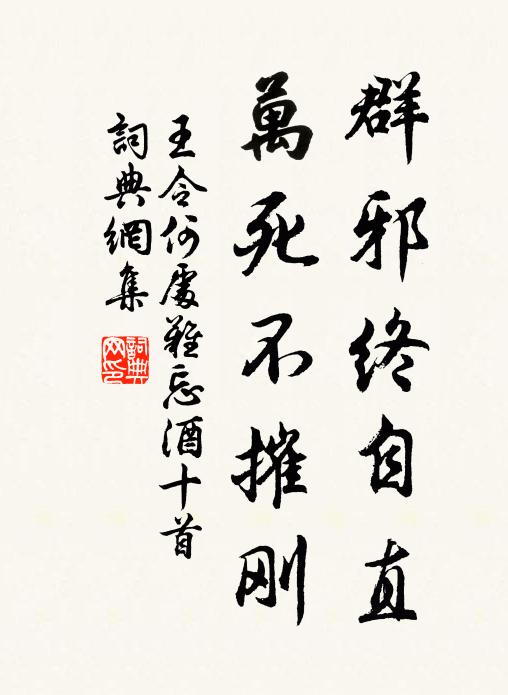 群邪終自直
萬死不摧剛
王令何處難忘酒十首
詞典網集
詞典
网印